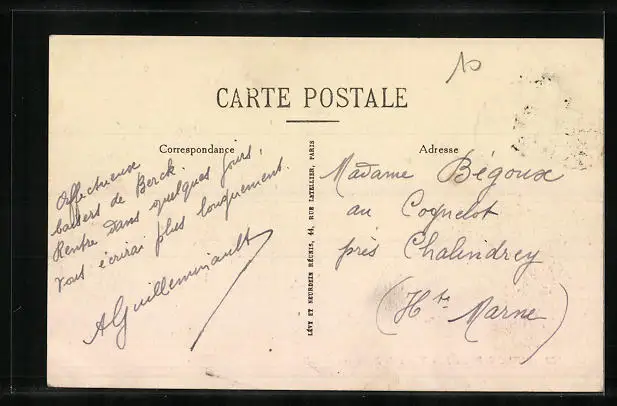 10
CARTE POSTALE
Correspondance
Adresse
Affectueux
baisers de Berck.
Rentre dans quelques jours,
vous écrirai plus longuement.
AGuilleminault
LÉVY ET NEURDEIN RÉUNIS, 44, RUE LETELLIER, PARIS
Madame Bégoux
au Coquelot
près Chalindrey
(Hte Marne)